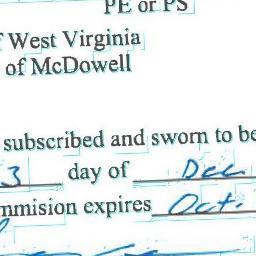 PE or PS
f West Virginia
of McDowell
subscribed and sworn to be
3 day of Dec
mmision expires Oct.